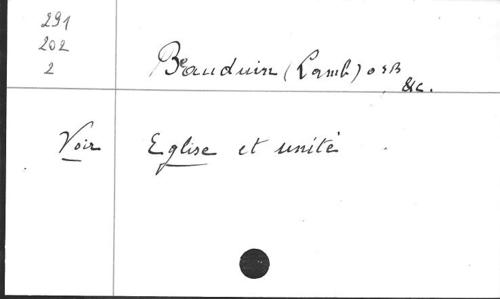 291
202
2
Beauduin (Lamb) OSB
&c.
Voir Eglise et unité.